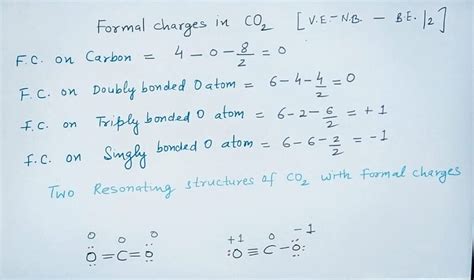 Formal charges in CO₂ [V.E-N.B. - B.E./2]
F.C. on Carbon = 4-0-8/2 = 0
F.C. on Doubly bonded O atom = 6-4-4/2 = 0
F.C. on Triply bonded O atom = 6-2-6/2 = +1
F.C. on Singly bonded O atom = 6-6-2/2 = -1
Two Resonating structures of CO₂ with formal charges
0 0 0 +1 0 -1
:Ö=C=Ö: :O≡C-Ö: